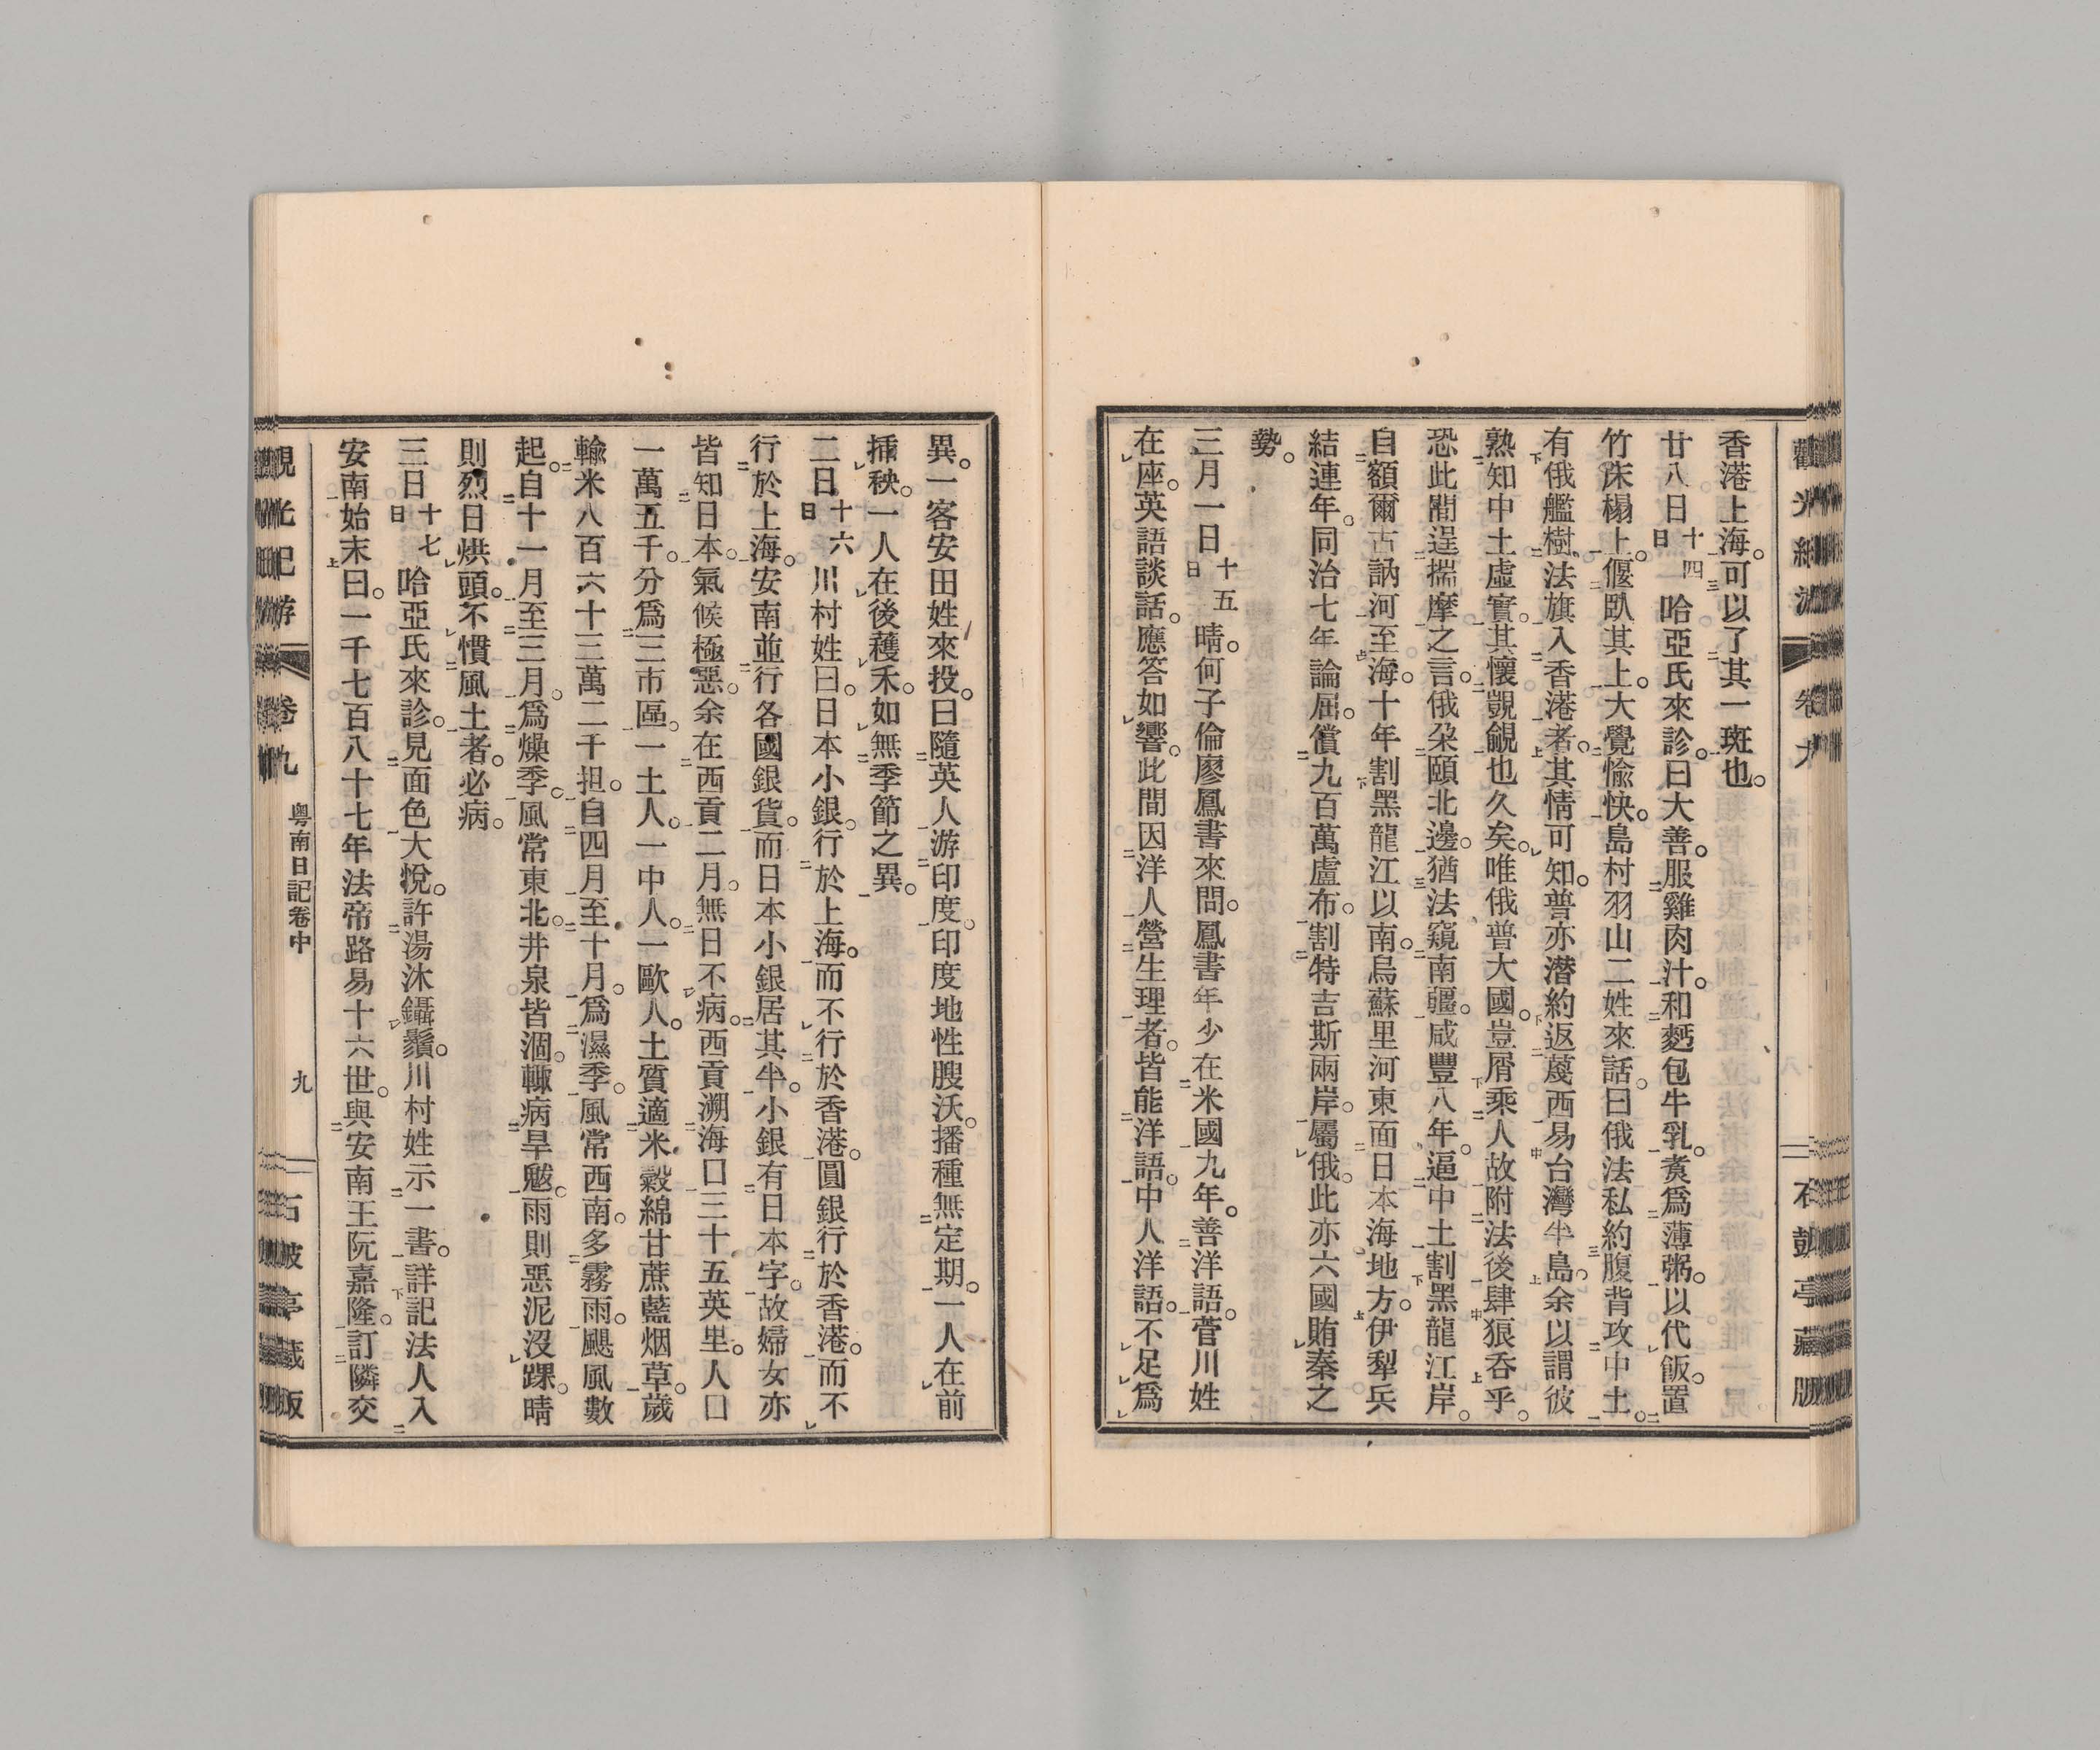 香港上海。可以了其一斑也。
廿八日十四日哈亞氏來診。曰大善。服雞肉汁。和麪包牛乳。煑爲薄粥。以代飯。置
竹床榻上。偃臥其上。大覺愉快。島村羽山二姓來話。曰俄法私約腹背攻中土。
有俄艦樹法旗入香港者。其情可知。普亦潜約返蔑西易台灣半島。余以謂彼
熟知中土虛實。其懷覬覦也久矣。唯俄普大國。豈屑乘人故附法後肆狼吞乎。
恐此閒逞揣摩之言。俄朶頤北邊。猶法窺南疆。咸豐八年。逼中土割黑龍江岸。
自額爾古訥河至海。十年割黑龍江以南。烏蘇里河東面日本海地方。伊犁兵
結連年。同治七年論屈。償九百萬盧布。割特吉斯兩岸。屬俄。此亦六國賄秦之
勢。
三月一日十五日晴。何子倫廖鳳書來問。鳳書年少在米國九年。善洋語。菅川姓
在座。英語談話。應答如響。此間因洋人營生理者。皆能洋語。中人洋語。不足爲
異。一客安田姓來投。曰隨英人游印度。印度地性膄沃。播種無定期。一人在前
揷秧。一人在後穫禾。如無季節之異。
二日十六日川村姓曰。日本小銀。行於上海。而不行於香港。圓銀行於香港。而不
行於上海。安南並行各國銀貨。而日本小銀居其半。小銀有日本字。故婦女亦
皆知日本。氣候極惡。余在西貢二月。無日不病。西貢溯海口三十五英里。人口
一萬五千。分爲三市區。一土人。一中人。一歐人。土質適米穀綿甘蔗藍烟草。歲
輸米八百六十三萬二千担。自四月至十月。爲濕季。風常西南。多霧雨。颶風數
起。自十一月至三月。爲燥季。風常東北。井泉皆涸。輙病旱魃。雨則惡泥沒踝。晴
則烈日烘頭。不慣風土者。必病。
三日十七日哈亞氏來診。見面色大悅。許湯沐鑷鬚。川村姓示一書。詳記法人入
安南始末。曰。一千七百八十七年法帝路易十六世。與安南王阮嘉隆。訂隣交
卷九
粤南日記卷中
九